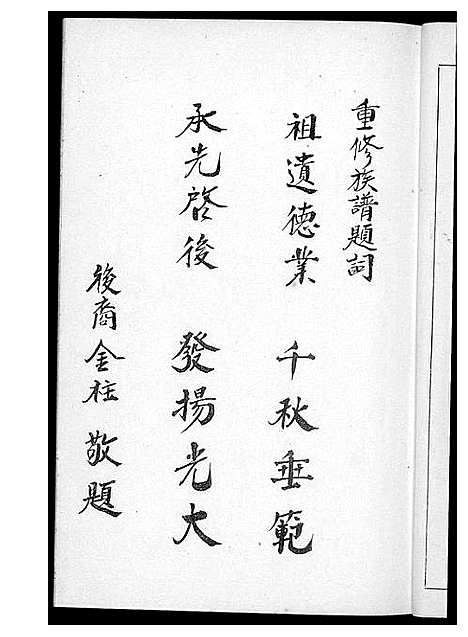 重修族譜題詞
祖遺德業　千秋垂範
承先啓後　發揚光大
後裔金柱　敬題